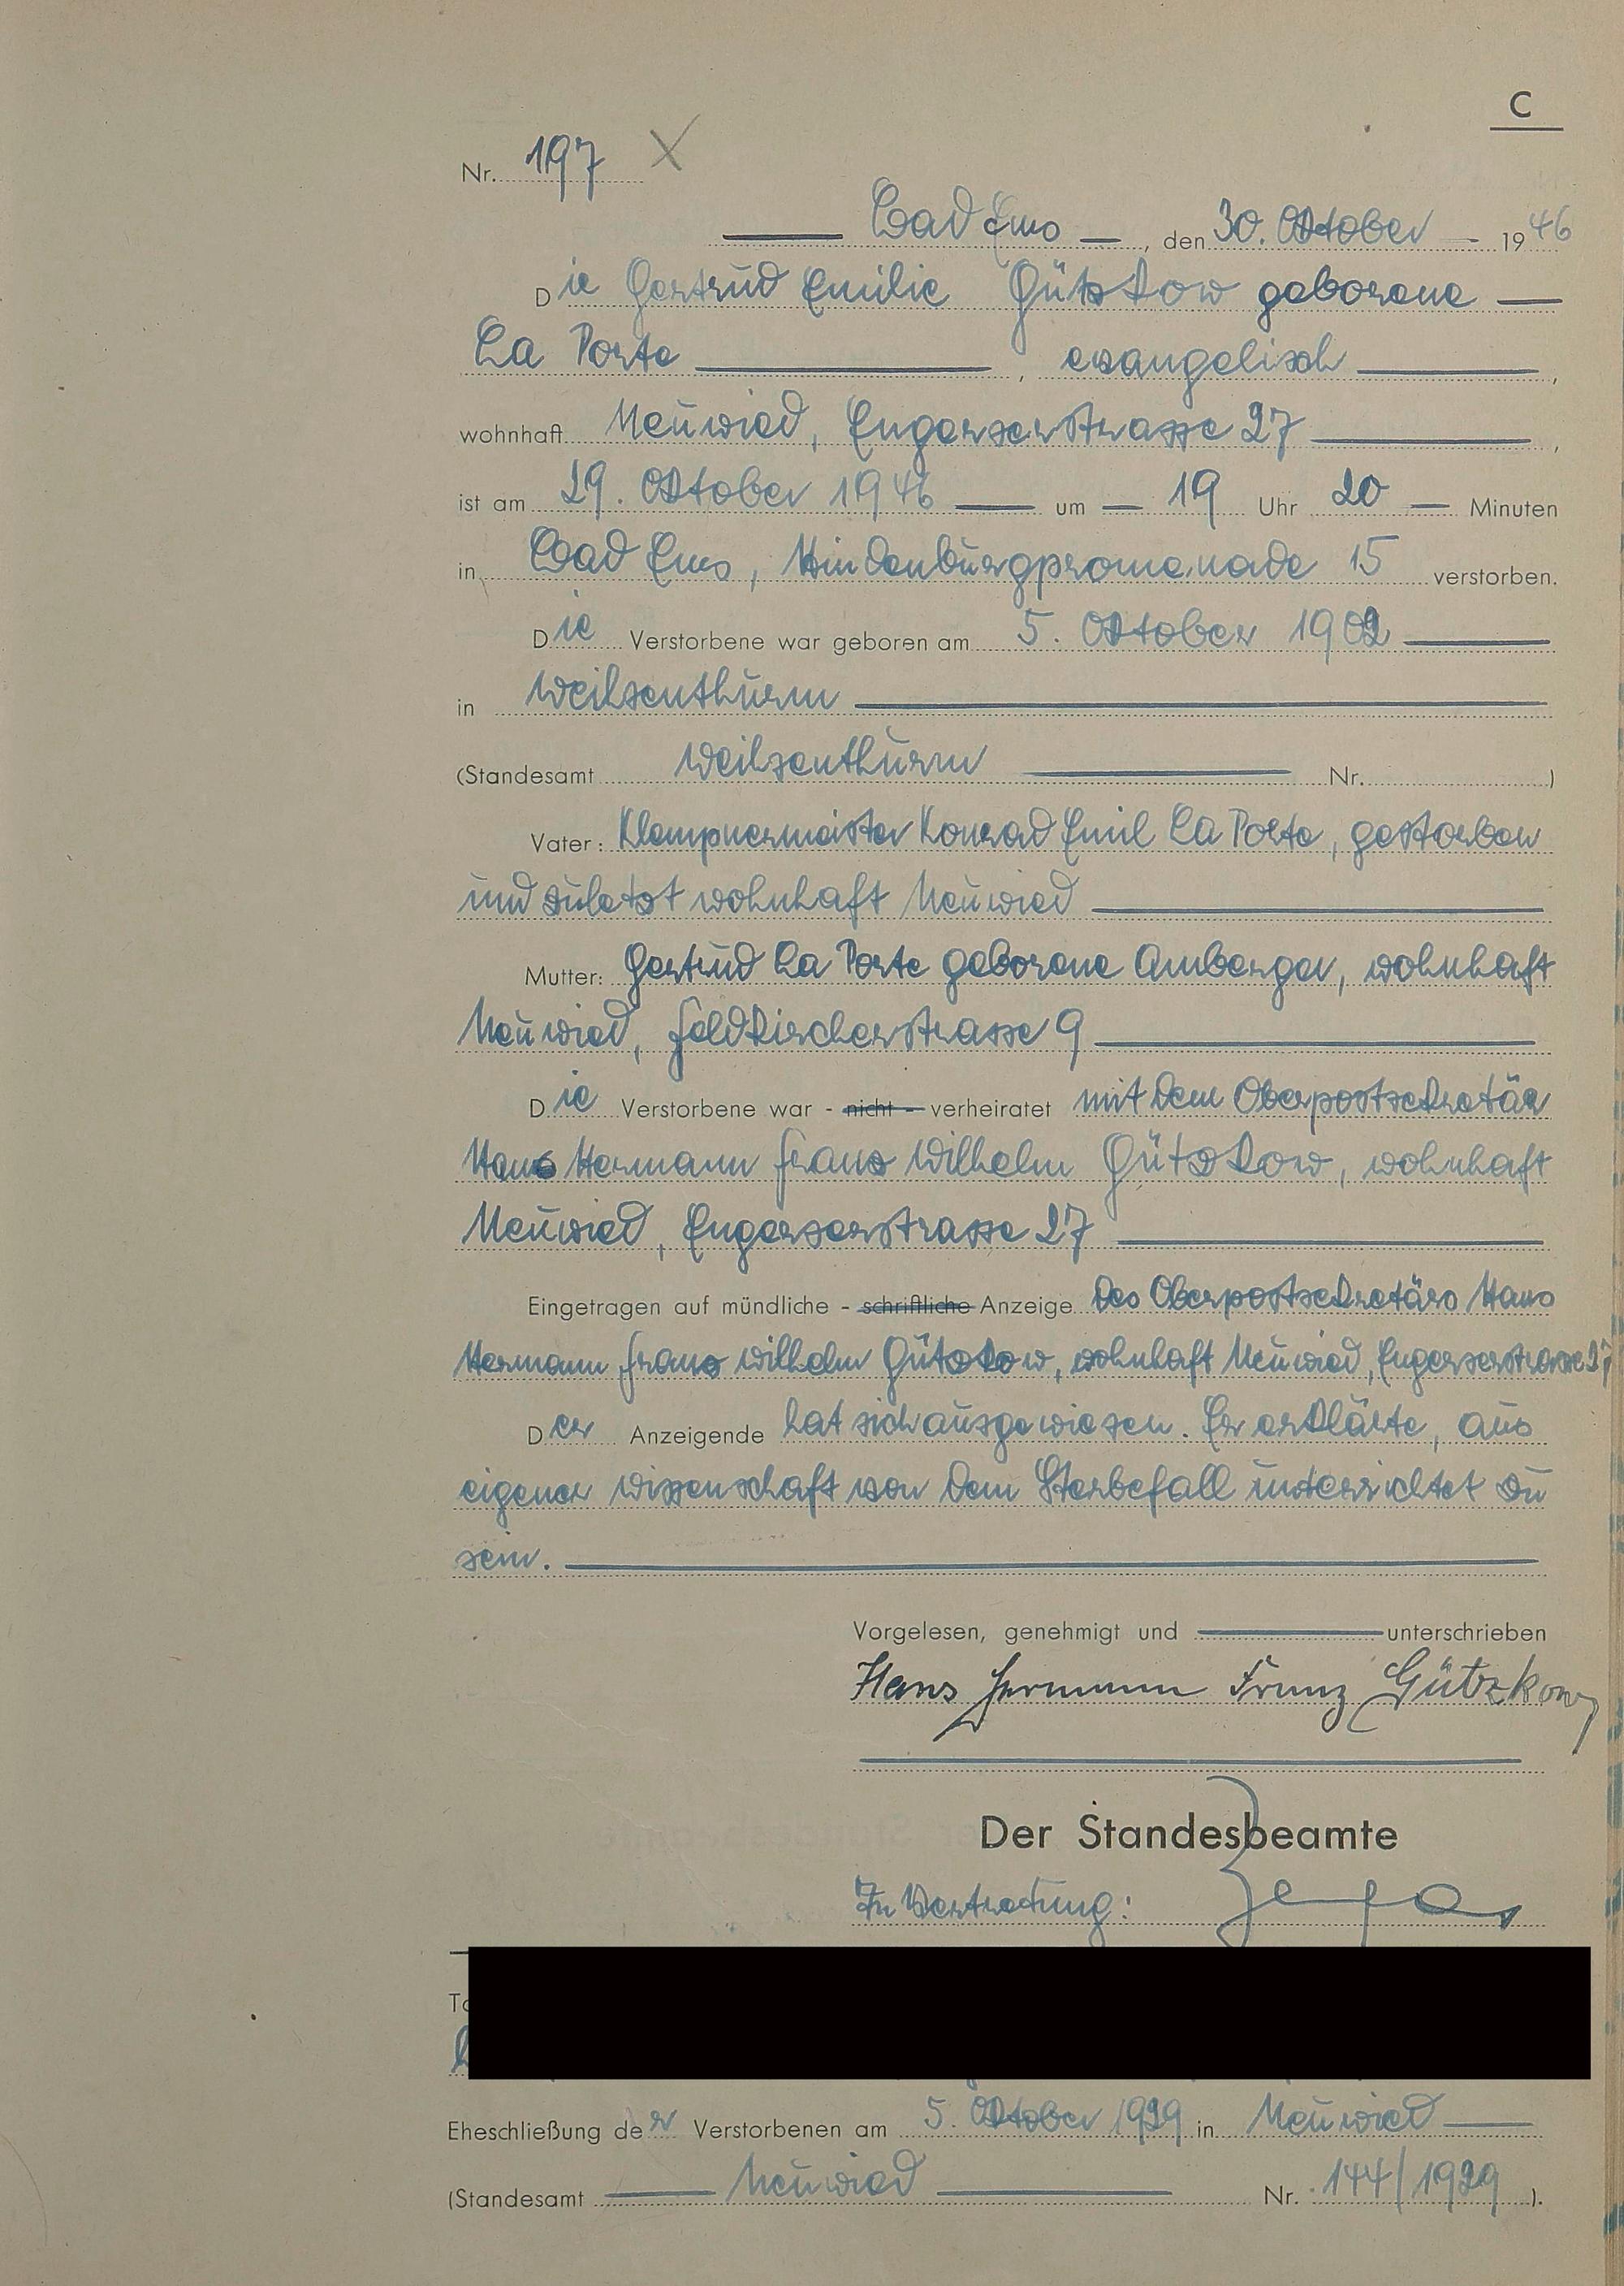 C
Nr. 197 X
Bad Ems, den 30. Oktober 1946
Die Gertrud Emilie Gützkow geborene
La Porte, evangelisch,
wohnhaft Neuwied, Engerserstrasse 27,
ist am 29. Oktober 1946 um 19 Uhr 20 Minuten
in Bad Ems, Hindenburgpromenade 15 verstorben.
Die Verstorbene war geboren am 5. Oktober 1902
in Weißenthurm
(Standesamt Weißenthurm Nr. )
Vater: Klempnermeister Konrad Emil La Porte, gestorben
und zuletzt wohnhaft Neuwied
Mutter: Gertrud La Porte geborene Amberger, wohnhaft
Neuwied, Feldkircherstrasse 9
Die Verstorbene war - nicht - verheiratet mit dem Oberpostsekretär
Hans Hermann Franz Wilhelm Gützkow, wohnhaft
Neuwied, Engerserstrasse 27
Eingetragen auf mündliche - schriftliche Anzeige des Oberpostsekretärs Hans
Hermann Franz Wilhelm Gützkow, wohnhaft Neuwied, Engerserstrasse 27
Der Anzeigende hat sich ausgewiesen. Er erklärte, aus
eigener Wissenschaft von dem Sterbefall unterrichtet zu
sein.
Vorgelesen, genehmigt und unterschrieben
Hans Hermann Franz Gützkow
Der Standesbeamte
In Vertretung:
Eheschließung der Verstorbenen am 5. Oktober 1929 in Neuwied
(Standesamt Neuwied Nr. 144/1929 ).